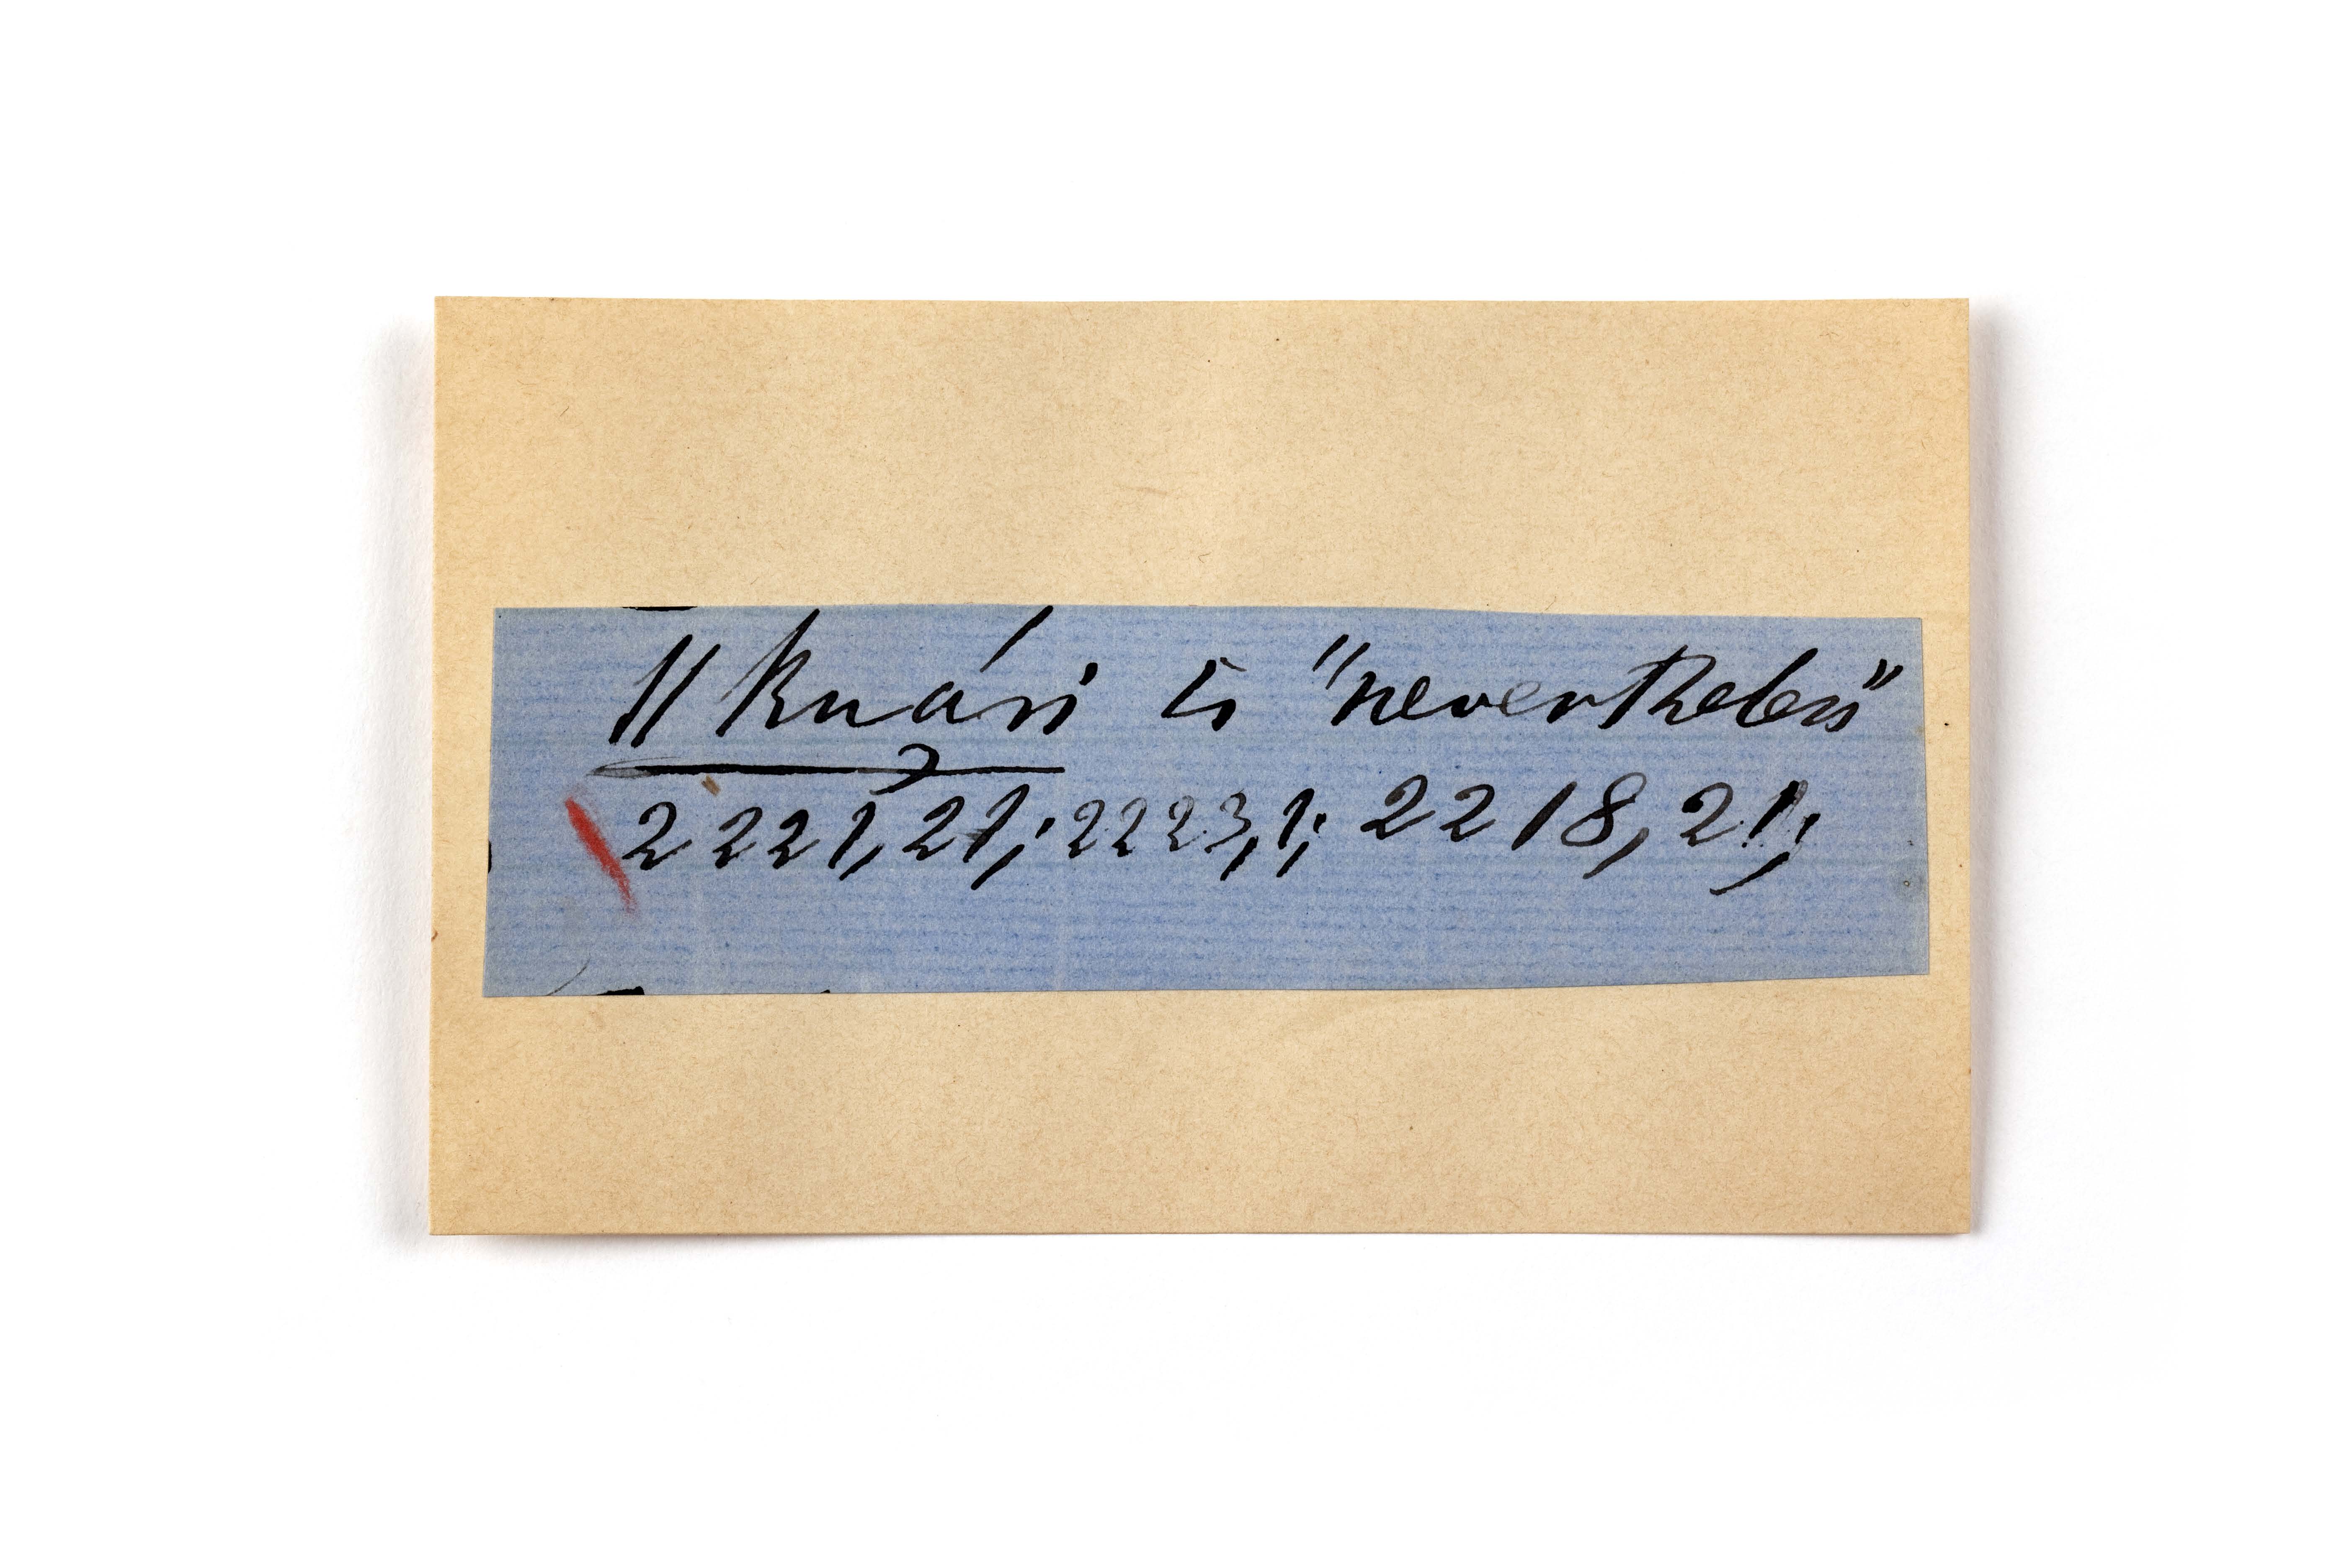 ǁkuáṅ is "nevertheless"
2221,21; 2223,1; 2218,21;